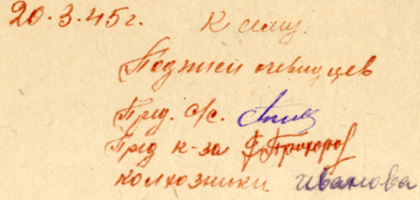 20.3.45г. К сему.
Подписи очевидцев
Пред. с/с.
Пред к-за Прохоров
колхозники Иванова